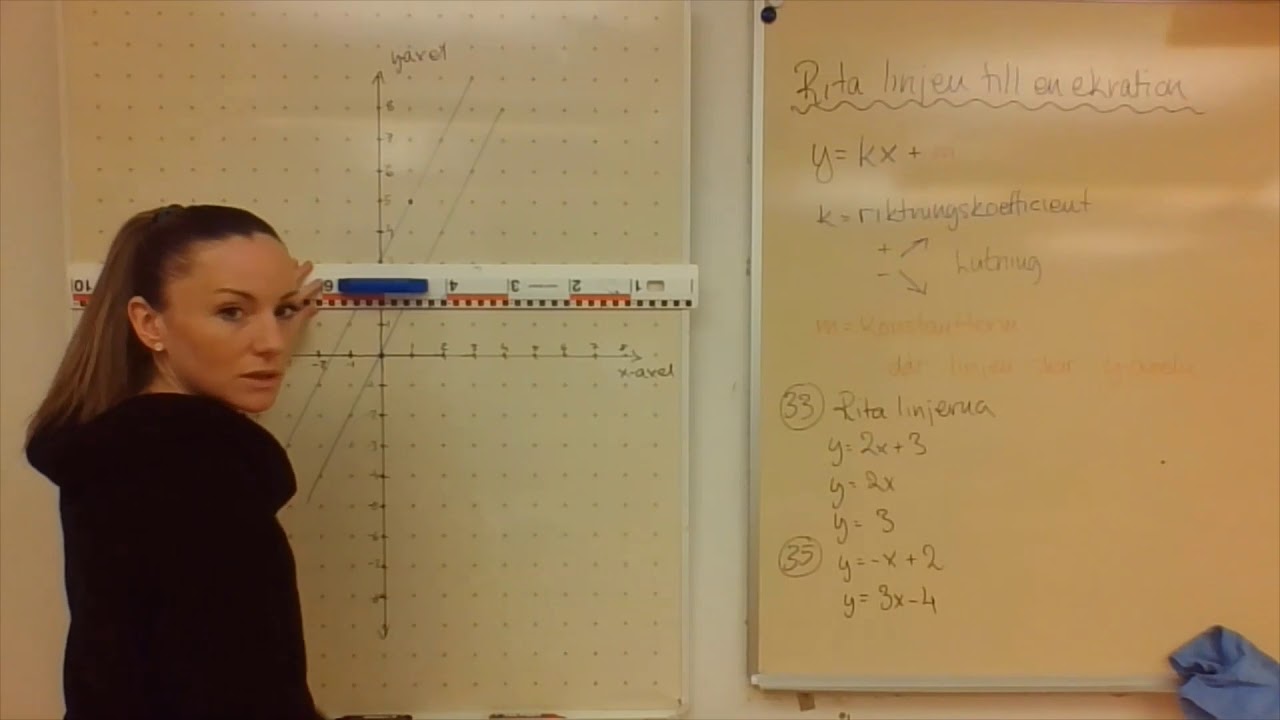 y-axel
8
7
6
5
4
10 6 4 3 2 1
1
-2 -1 1 2 3 4 5 6 7 8
x-axel
-2
-3
-4
-5
-6
-7
-8
Rita linjen till en ekvation
y = kx + m
k = riktningskoefficient
+
- Lutning
m = konstantterm
där linjen skär y-axeln
33 Rita linjerna
y = 2x + 3
y = 2x
y = 3
35 y = -x + 2
y = 3x - 4